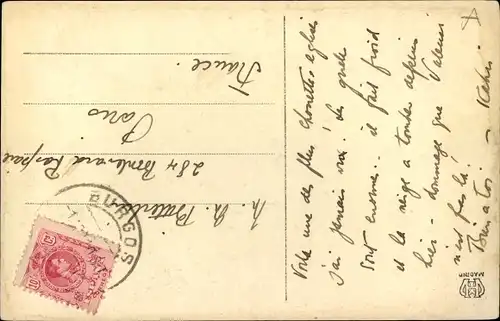 Voilà une des plus chouettes églises
j'ai jamais vue! Les quelle
sont énorme. il fait froid
et la neige a tombée depuis
hier - dommage que Valence
n'est pas là!
Bien à toi -
M. Ch.
284 Boulevard Raspail
Paris
France.
BURGOS
10
10
MADRID